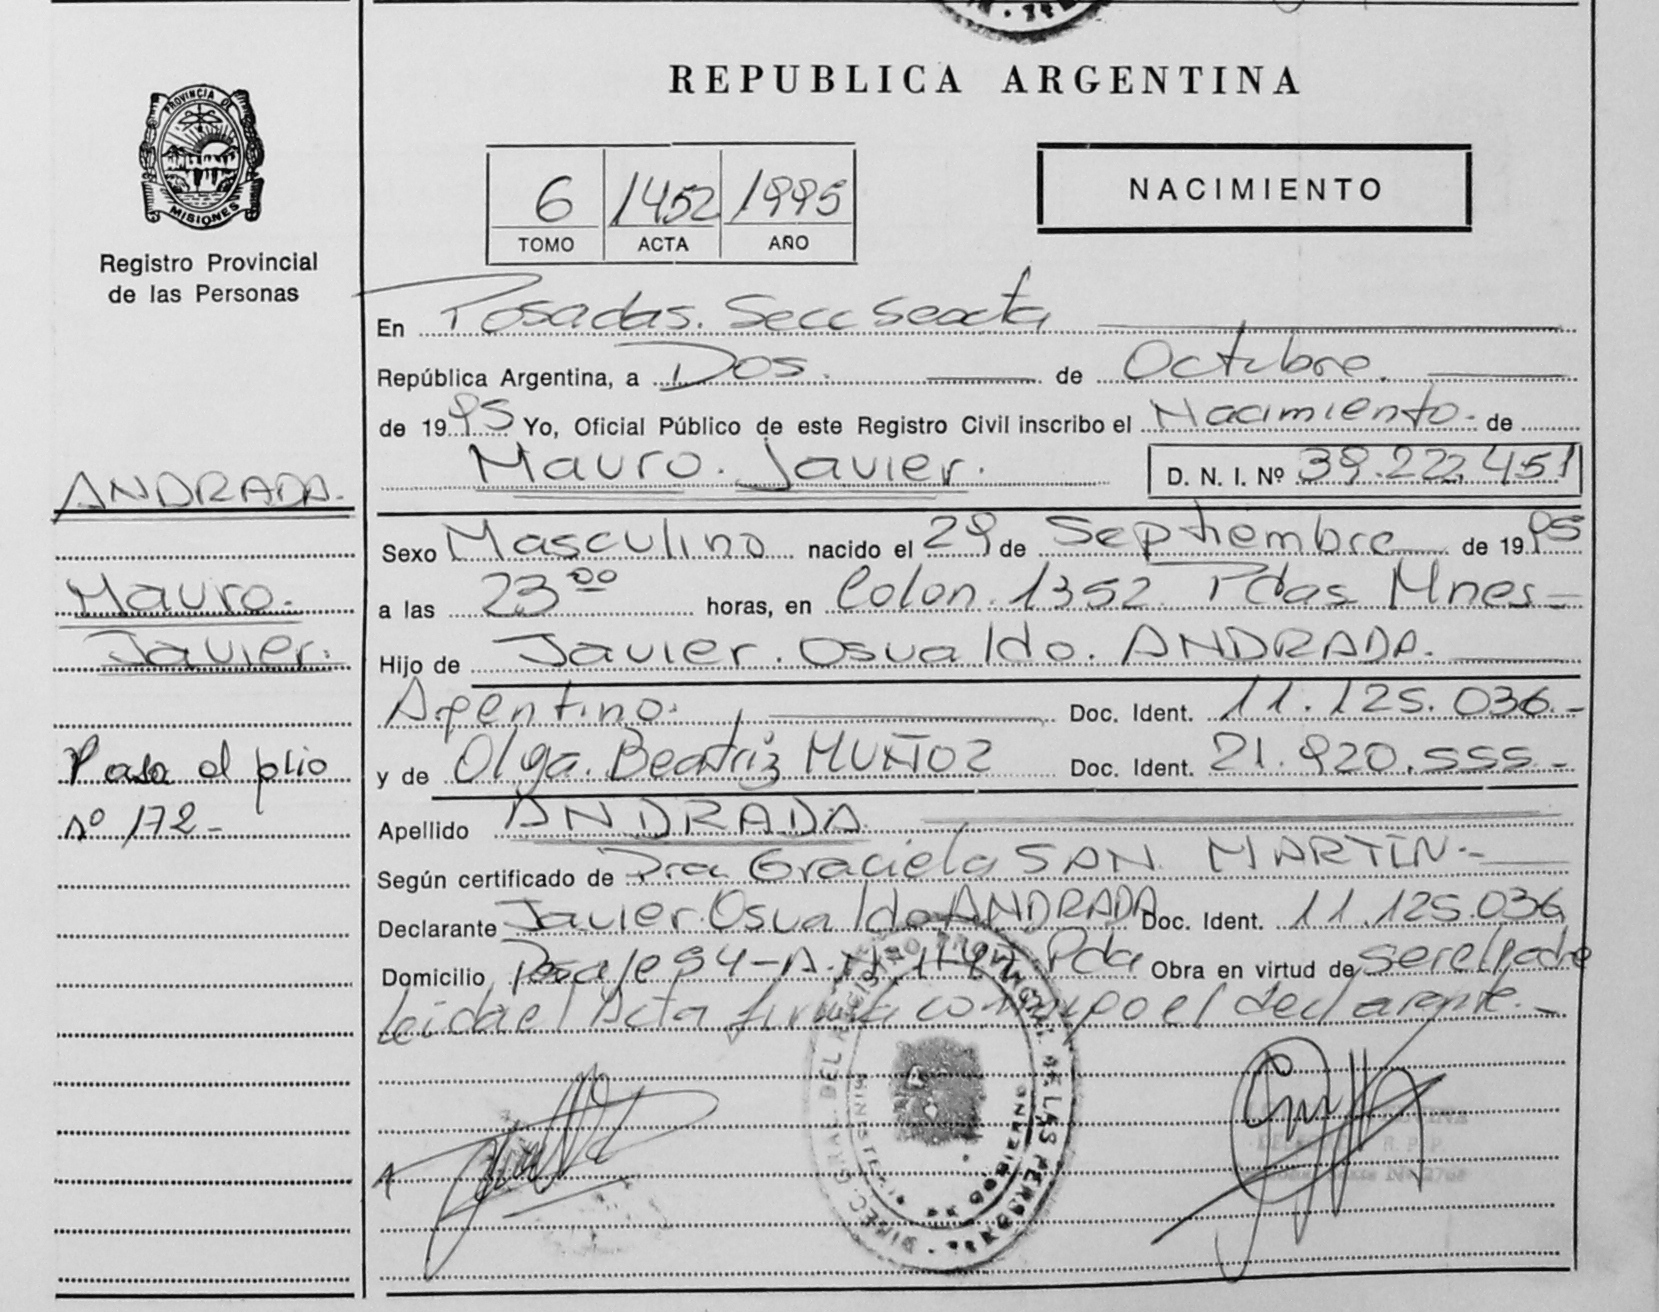 REPUBLICA ARGENTINA
PROVINCIA DE
MISIONES
Registro Provincial
de las Personas
6 1452 1995
TOMO ACTA AÑO
NACIMIENTO
En Posadas. Secc Sexta
República Argentina, a Dos. de Octubre.
de 1995 Yo, Oficial Público de este Registro Civil inscribo el Nacimiento. de
Mauro. Javier. D. N. I. Nº 39.222.451
ANDRADA.
Mauro.
Javier.
Pasa al plio
nº 172-
Sexo Masculino nacido el 29 de Septiembre de 1995
a las 23 00 horas, en Colon. 1352. Pdas Mnes-
Hijo de Javier. Osvaldo. ANDRADA.
Argentino. Doc. Ident. 11.125.036.-
y de Olga. Beatriz MUÑOZ Doc. Ident. 21.920.555.-
Apellido ANDRADA
Según certificado de Dra Graciela SAN MARTIN.-
Declarante Javier.Osvaldo ANDRADA Doc. Ident. 11.125.036
Domicilio Pasaje 94-A.N Pda Obra en virtud de ser el padre
Leida el Acta firma conmigo el declarante.-
DIREC. GRAL. DEL REGISTRO PROVINCIAL DE LAS PERSONAS
MINISTERIO DE GOBIERNO